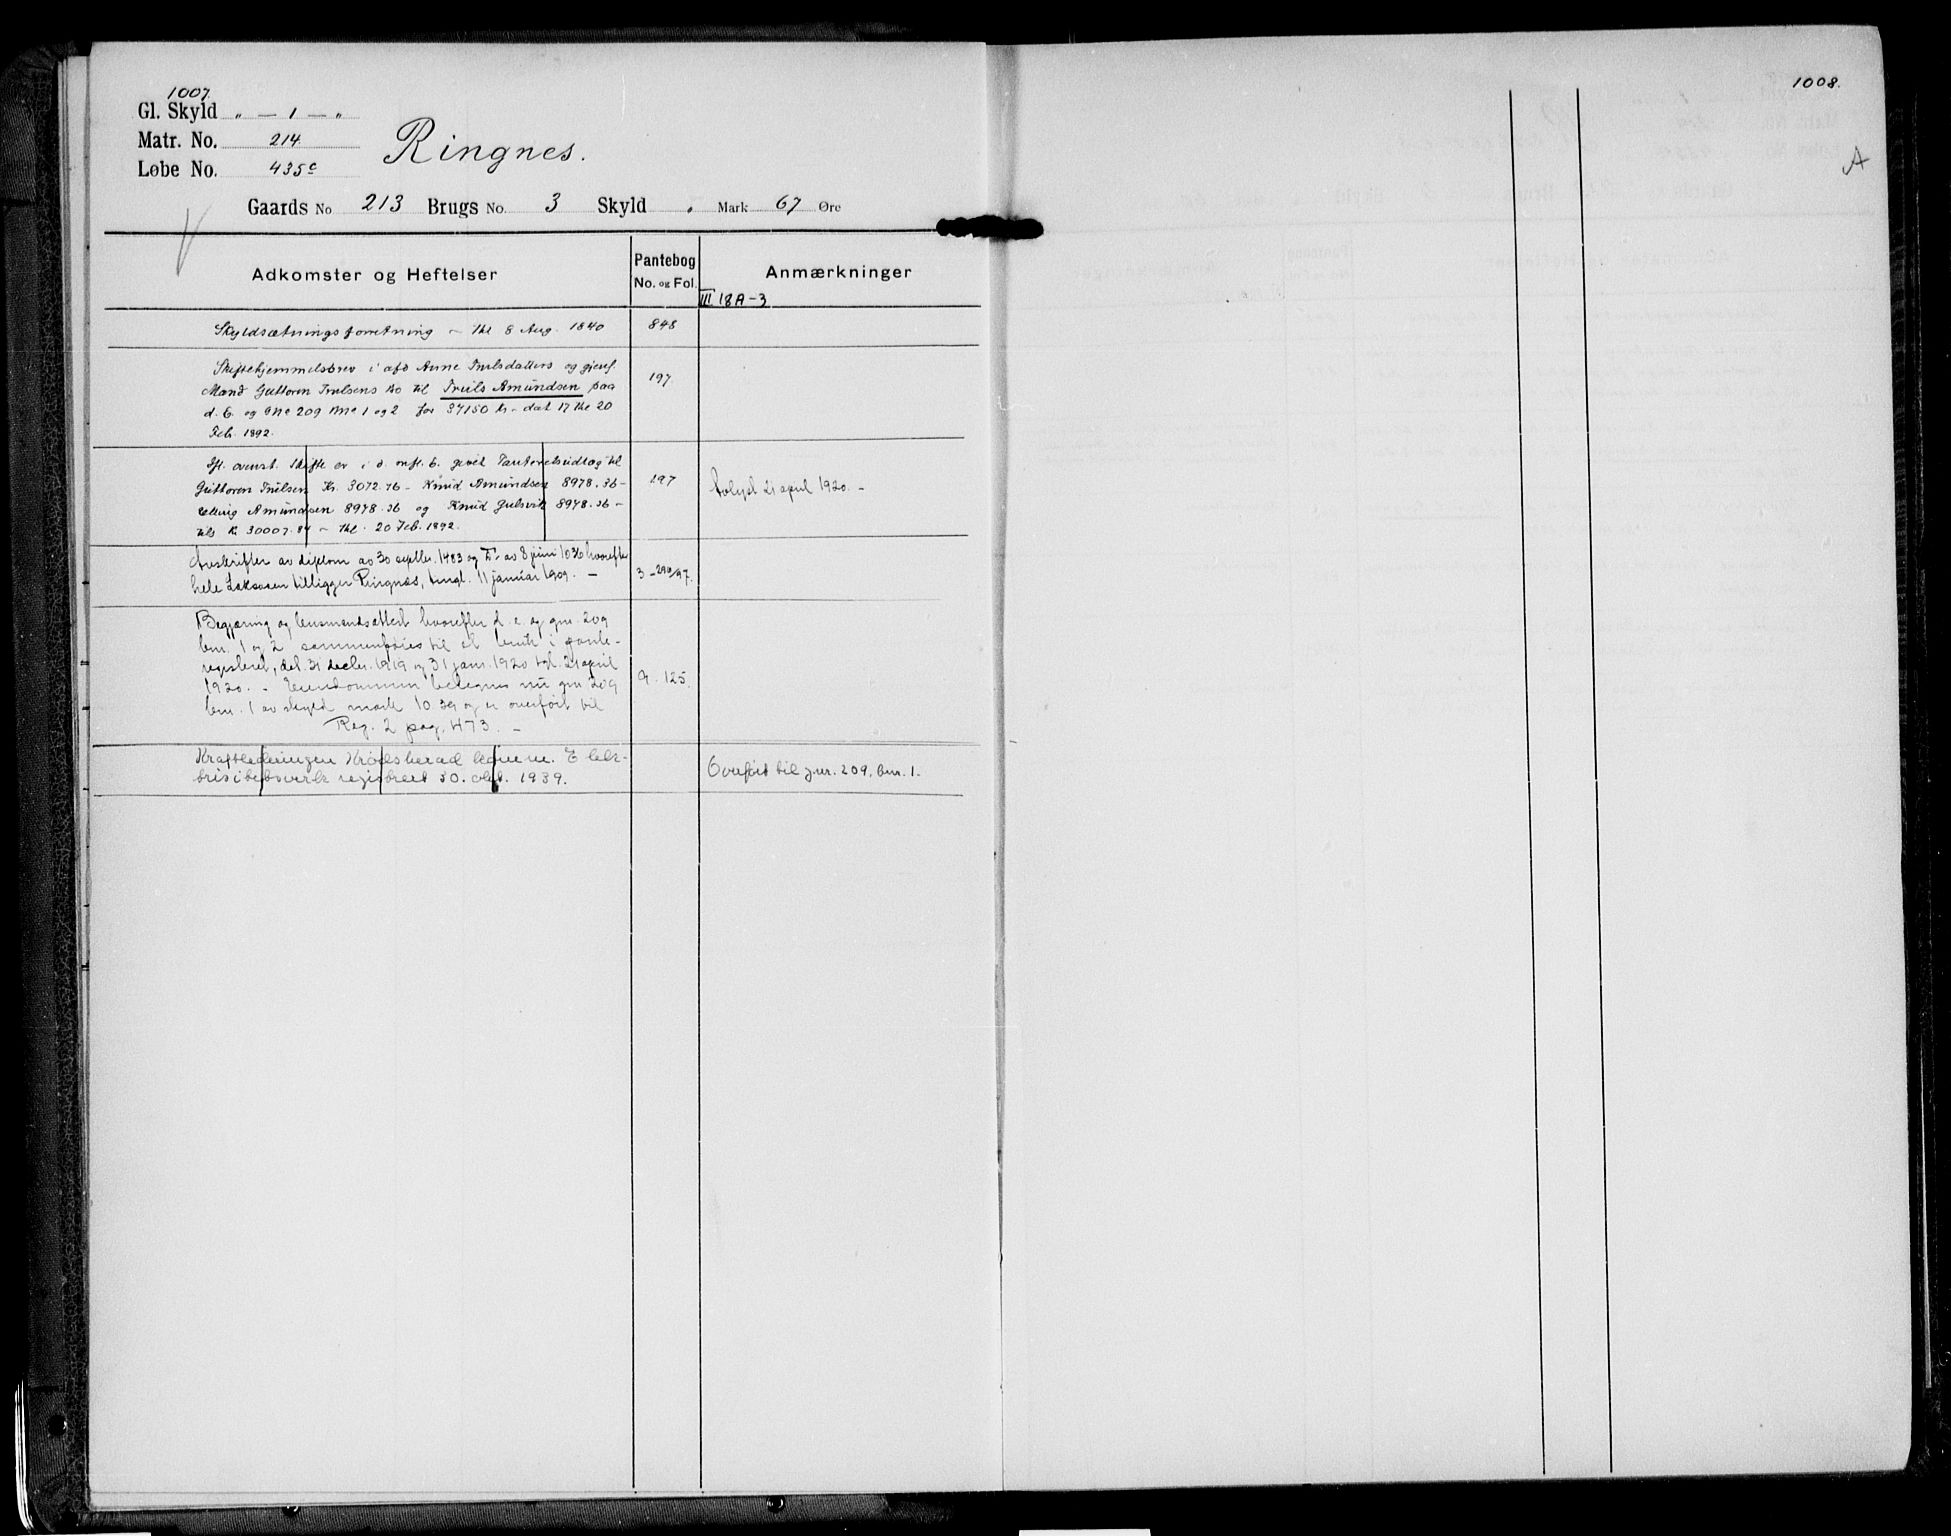 1007.
Gl. Skyld „ - 1 - „
Matr. No. 214.
Løbe No. 435c
Ringnes.
Gaards No 213 Brugs No. 3 Skyld „ Mark 67 Øre
Adkomster og Heftelser
Pantebog
No. og Fol.
Anmærkninger
III 18A-3
Skyldsætningsforretning - thl 8 Aug. 1840
848
Skiftehjemmelsbrev i afd Anne Trulsdatters og gjenl.
Mand Guttorm Trulsens Bo til Truls Amundsen paa
d. E. og Gno 209 Bno 1 og 2 for 37150 Kr - dat 17 thl 20
Feb. 1892.
197.
Ifl. ovenst. Skifte er i d. E. givet Panteretsudlæg til
Guttorm Trulsen Kr. 3072.76 - Knud Amundsen 8978.36 -
Amundsen 8978.36 og Knud Gulsvik 8978.36 -
tils Kr 30007.84 - thl. 20 Feb. 1892.
197
Avlyst 21 april 1920. -
Avskrifter av diplom av 30 septbr. 1483 og Do av 8 juni 1036 hvorefter
hele tilligger Ringnes, tingl. 11 januar 1909. -
3 - 296/97.
Begjæring og lensmandsattest hvorefter d. e. og gnr. 209
bnr. 1 og 2 sammenføies til et bruk i pante-
registeret, dat. 31 decbr. 1919 og 31 jan. 1920 tgl. 21 april
1920. - Eiendommen betegnes nu gnr 209
bnr. 1 av skyld mark 10 39 og er overført til
Reg. 2 pag. 473. -
9 - 125.
Kraftledningen Krødsherad komm. Elek-
trisitetsverk registrert 30. okt. 1939.
Overført til gnr. 209, bnr. 1.
1008.
A